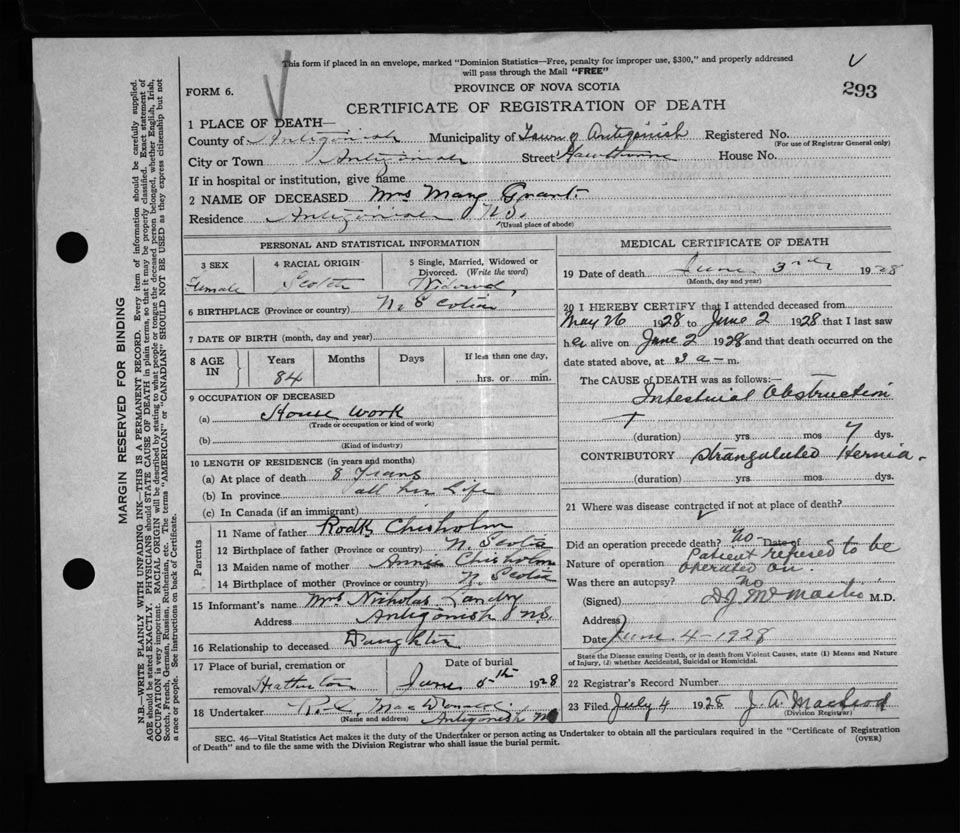 This form if placed in an envelope, marked "Dominion Statistics—Free, penalty for improper use, $300," and properly addressed
will pass through the Mail "FREE"
V
FORM 6.
PROVINCE OF NOVA SCOTIA
293
CERTIFICATE OF REGISTRATION OF DEATH
1 PLACE OF DEATH—
County of Antigonish Municipality of Town of Antigonish Registered No.
(For use of Registrar General only)
City or Town Antigonish Street Hawthorne House No.
If in hospital or institution, give name
2 NAME OF DECEASED Mrs Mary Grant
Residence Antigonish N.S.
(Usual place of abode)
PERSONAL AND STATISTICAL INFORMATION
3 SEX
Female
4 RACIAL ORIGIN
Scotch
5 Single, Married, Widowed or
Divorced. (Write the word)
Widowed
6 BIRTHPLACE (Province or country) N. Scotia
7 DATE OF BIRTH (month, day and year)
8 AGE IN
Years Months Days If less than one day,
84 hrs. or min.
9 OCCUPATION OF DECEASED
(a) House Work
(Trade or occupation or kind of work)
(b)
(Kind of industry)
10 LENGTH OF RESIDENCE (in years and months)
(a) At place of death 8 Years
(b) In province all her Life
(c) In Canada (if an immigrant)
Parents
11 Name of father Chisholm
12 Birthplace of father (Province or country) N. Scotia
13 Maiden name of mother Annie Chisholm
14 Birthplace of mother (Province or country) N. Scotia
15 Informant's name Mrs Nicholas Landry
Address Antigonish N.S.
16 Relationship to deceased Daughter
17 Place of burial, cremation or
removal Heatherton
Date of burial
June 5th 1928
18 Undertaker MacDonald
(Name and address) Antigonish N.S.
MEDICAL CERTIFICATE OF DEATH
19 Date of death June 3rd 1928
(Month, day and year)
20 I HEREBY CERTIFY that I attended deceased from
May 26 1928 to June 2 1928 that I last saw
her alive on June 2 1928 and that death occurred on the
date stated above, at 3 a—m.
The CAUSE OF DEATH was as follows:—
Intestinal Obstruction
(duration) yrs mos 7 dys.
CONTRIBUTORY Strangulated Hernia.
(duration) yrs. mos. dys.
21 Where was disease contracted if not at place of death?
Did an operation precede death? no Date of
Nature of operation Patient refused to be
operated on.
Was there an autopsy? no
(Signed) M.D.
Address
Date June 4-1928
State the Disease causing Death, or in death from Violent Causes, state (1) Means and Nature
of Injury, (2) whether Accidental, Suicidal or Homicidal.
22 Registrar's Record Number
23 Filed July 4 1928 J. A. Macleod
(Division Registrar)
SEC. 46—Vital Statistics Act makes it the duty of the Undertaker or person acting as Undertaker to obtain all the particulars required in the "Certificate of Registration
of Death" and to file the same with the Division Registrar who shall issue the burial permit. (OVER)
MARGIN RESERVED FOR BINDING
N.B.—WRITE PLAINLY WITH UNFADING INK—THIS IS A PERMANENT RECORD. Every item of information should be carefully supplied.
AGE should be stated EXACTLY. PHYSICIANS should STATE CAUSE OF DEATH in plain terms, so that it may be properly classified. Exact statement of
OCCUPATION is very important. RACIAL ORIGIN will be described by stating to what people or tongue the deceased person belonged, whether English, Irish,
Scotch, French, German, Russian, Ruthenian, etc. The terms "AMERICAN" or "CANADIAN" SHOULD NOT BE USED as they express citizenship but not
a race or people. See instructions on back of Certificate.